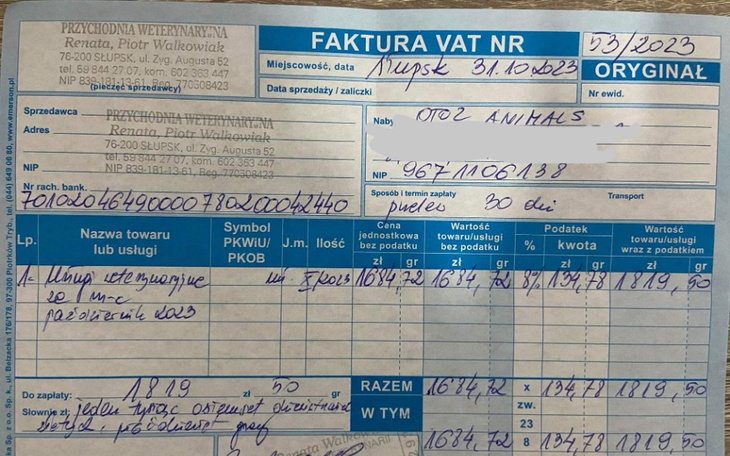 PRZYCHODNIA WETERYNARYJNA
Renata, Piotr Walkowiak
76-200 SŁUPSK, ul. Zyg. Augusta 52
tel. 59 844 27 07, kom. 602 363 447
NIP 839-181-13-61, Reg. 770508423
(pieczęć sprzedawcy)
FAKTURA VAT NR 53/2023
Miejscowość, data Słupsk 31.10.2023
ORYGINAŁ
Data sprzedaży / zaliczki
Nr ewid.
Sprzedawca PRZYCHODNIA WETERYNARYJNA
Adres Renata, Piotr Walkowiak
76-200 SŁUPSK, ul. Zyg. Augusta 52
tel. 59 844 27 07, kom. 602 363 447
NIP 839-181-13-61, Reg. 770508423
Nr rach. bank.
70102046490000780200042440
Nab OTOZ ANIMALS
NIP 9671106138
Sposób i termin zapłaty Transport
przelew 30 dni
Lp. Nazwa towaru lub usługi Symbol PKWiU/ PKOB J.m. Ilość Cena jednostkowa bez podatku Wartość towaru/usługi bez podatku Podatek Wartość towaru/usługi wraz z podatkiem
zł gr zł gr % kwota zł gr
1. Usługi weterynaryjne X/2023 1684,72 1684,72 8% 134,78 1819,50
za m-c
październik 2023
Do zapłaty: 1819 zł 50 gr
RAZEM 1684,72 x 134,78 1819,50
Słownie zł: jeden tysiąc osiemset dziewiętnaście
złotych, pięćdziesiąt groszy
W TYM
zw.
23
1684,72 8 134,78 1819,50
Renata Walkowiak
ul. Bełzacka 176/178, 97-300 Piotrków Tryb., tel. (044) 649 06 80, www.emerson.pl